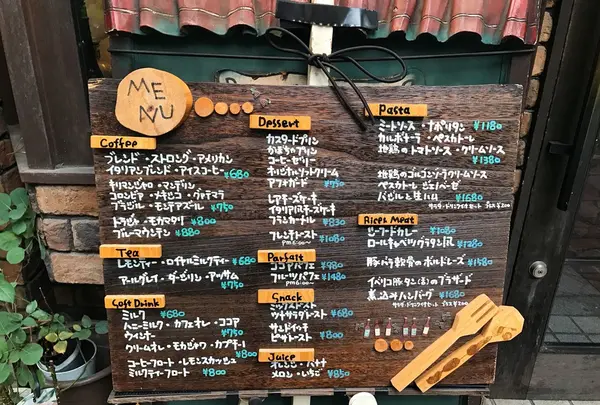 MENU
Coffee
ブレンド・ストロング・アメリカン
イタリアンブレンド・アイスコーヒー ¥680
キリマンジャロ・マンデリン
コロンビア・メキシコ・グァテマラ
ブラジル・モンテアズール ¥750
トラジャ・モカマタリ ¥800
ブルーマウンテン ¥880
Tea
レモンティー・ロイヤルミルクティー ¥680
アールグレイ・ダージリン・アッサム
¥750
Soft Drink
ミルク ¥680
ハニーミルク・カフェオレ・ココア
ウィンナー ¥750
クリームオレ・モカジャワ・カプチーノ
¥800
コーヒーフロート・レモンスカッシュ
ミルクティーフロート ¥850
Dessert
カスタードプリン
かぼちゃプリン
コーヒーゼリー
アフォガード ¥750
レアチーズケーキ
イタリアンチーズケーキ
¥830
フレンチトースト
PM6:00〜 ¥1080
Parfait
ココアパフェ ¥980
フルーツパフェ ¥1480
PM6:00〜
Snack
ツナサラダトースト ¥680
サンドイッチ
ピザトースト ¥880
Juice
オレンジ・バナナ
メロン・いちご ¥850
Pasta
ミートソース・ナポリタン ¥1180
カルボナーラ・ペスカトーレ
地鶏のトマトソース・クリームソース
¥1380
地鶏のゴルゴンゾーラクリームソース
ペスカトーレ ジェノベーゼ
バジルと生ハム ¥1680
サラダ・ドリンクセット プラス ¥200
Rice, Meat
ビーフカレー ¥1080
ロールキャベツグラタン風 ¥1280
豚バラ軟骨のボルドレーズ ¥1580
イベリコ豚タン(舌)のブラザード
煮込みハンバーグ ¥1680
サラダ・ドリンクセット プラス ¥200